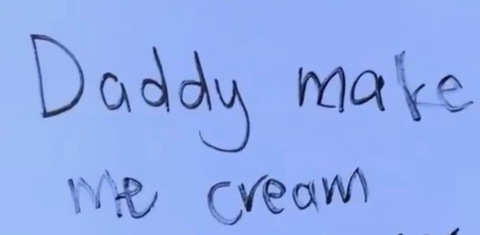 Daddy make
me cream